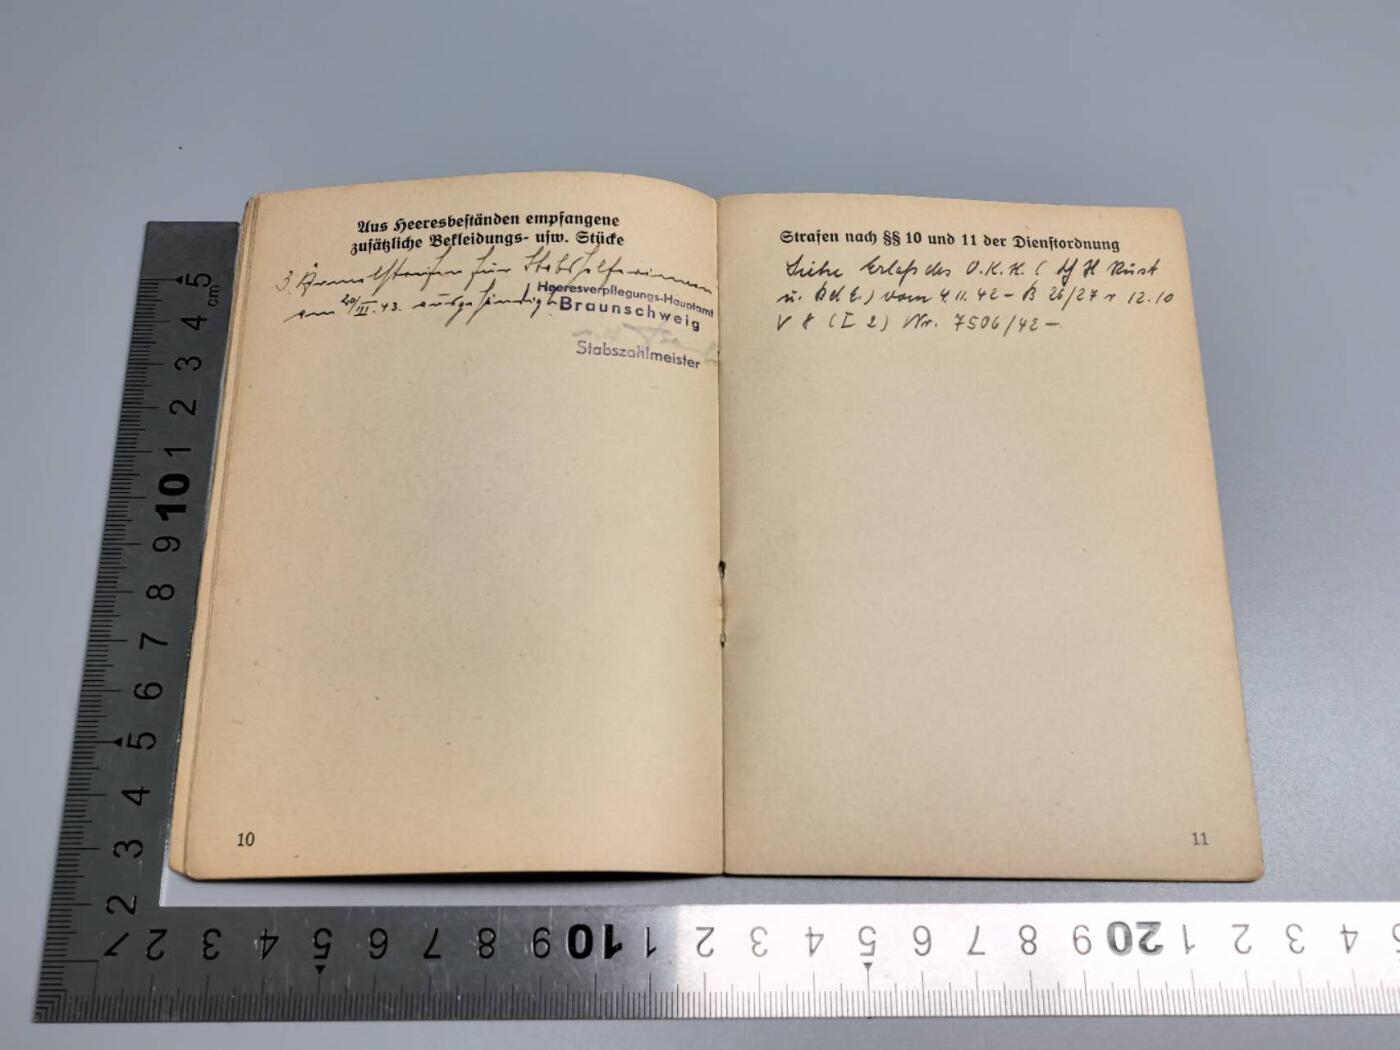 Aus Heeresbeständen empfangene
zusätzliche Bekleidungs- usw. Stücke
3 Ärmelstreifen für Stabshelferinnen
am 20/III. 43. ausgehändigt
Heeresverpflegungs-Hauptamt
Braunschweig
Stabszahlmeister
10
Strafen nach §§ 10 und 11 der Dienstordnung
Siehe Erlaß des O.K.H. ( Ch H Rüst
u. BdE.) vom 4.11.42 – B 26/27 r 12.10
V 8 (I 2) Nr. 7506/42 –
11
5
cm
4
3
2
1
10
9
8
7
6
5
4
3
2
2 3 4 5 6 7 8 9 10 1 2 3 4 5 6 7 8 9 20 1 2 3 4